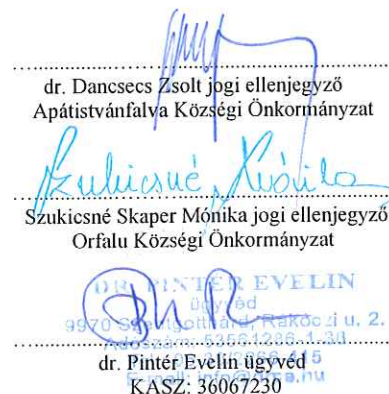 dr. Dancsecs Zsolt jogi ellenjegyző
Apátistvánfalva Községi Önkormányzat
Szukicsné Mónika
Szukicsné Skaper Mónika jogi ellenjegyző
Orfalu Községi Önkormányzat
DR. PINTÉR EVELIN
ügyvéd
9970 Szentgotthárd, Rákóczi u. 2.
Adószám:
dr. Pintér Evelin ügyvéd
KASZ: 36067230